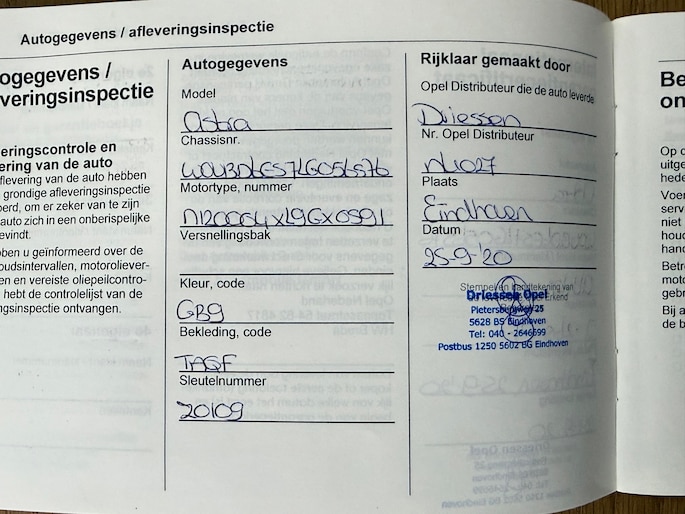 Autogegevens / afleveringsinspectie
ogegevens /
veringsinspectie
eringscontrole en
ering van de auto
flevering van de auto hebben
grondige afleveringsinspectie
erd, om er zeker van te zijn
auto zich in een onberispelijke
evindt.
ben u geïnformeerd over de
oudsintervallen, motoroliever-
en en vereiste oliepeilcontro-
hebt de controlelijst van de
ngsinspectie ontvangen.
Autogegevens
Model
Astra
Chassisnr.
Motortype, nummer
Versnellingsbak
Kleur, code
GB9
Bekleding, code
TAQF
Sleutelnummer
20109
Rijklaar gemaakt door
Opel Distributeur die de auto leverde
Driessen
Nr. Opel Distributeur
NL027
Plaats
Eindhoven
Datum
25-9-'20
Stempel en handtekening van
Erkend
Driessen Opel
Pietersbergweg 25
5628 BS Eindhoven
Tel: 040 - 2646699
Postbus 1250 5602 BG Eindhoven
Be
on
Op d
uitge
hede
Voer
serv
niet
houd
hand
Betre
moto
gebr
Bij a
de b